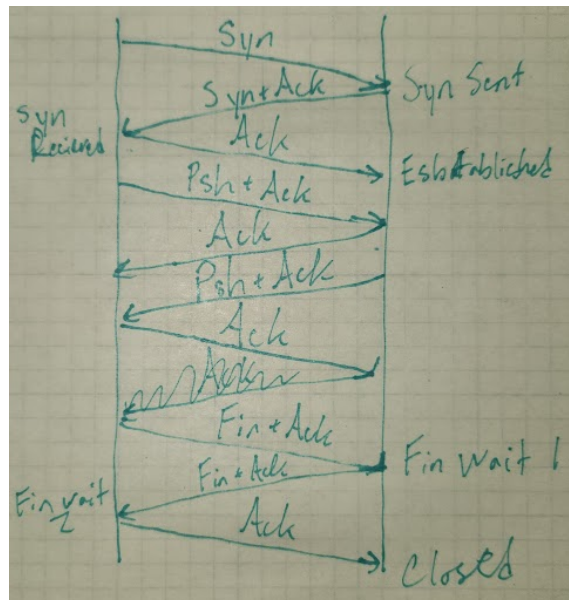 Syn
Syn + Ack
Syn Sent
Syn
Recieved
Ack
Esbtablished
Psh + Ack
Ack
Psh + Ack
Ack
Ack
Fin + Ack
Fin + Ack
Fin Wait 1
Fin wait
2
Ack
Closed